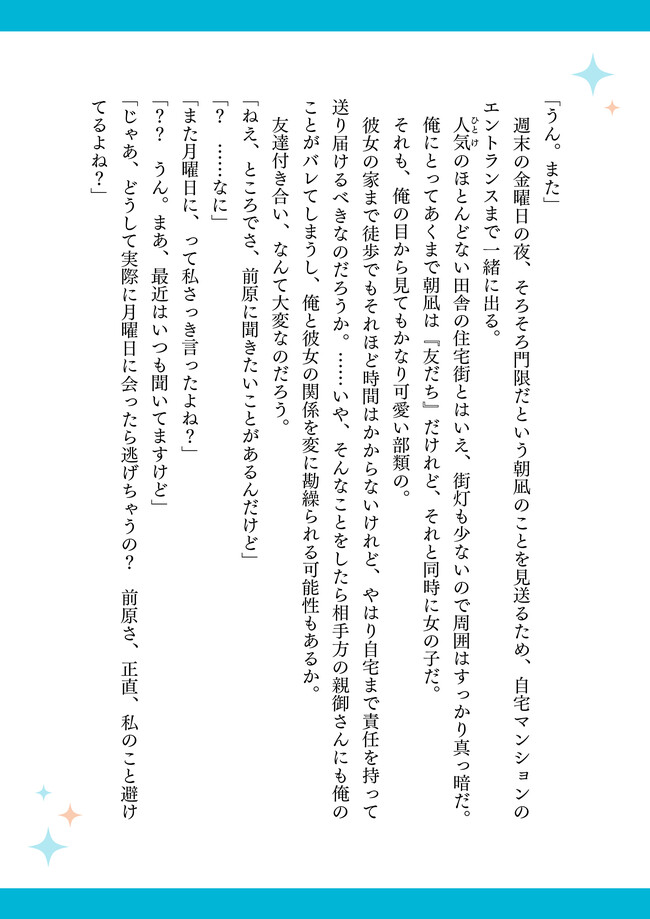 「うん。また」
　週末の金曜日の夜、そろそろ門限だという朝凪のことを見送るため、自宅マンションの
エントランスまで一緒に出る。
　人気のほとんどない田舎の住宅街とはいえ、街灯も少ないので周囲はすっかり真っ暗だ。
　俺にとってあくまで朝凪は『友だち』だけれど、それと同時に女の子だ。
　それも、俺の目から見てもかなり可愛い部類の。
　彼女の家まで徒歩でもそれほど時間はかからないけれど、やはり自宅まで責任を持って
送り届けるべきなのだろうか。……いや、そんなことをしたら相手方の親御さんにも俺の
ことがバレてしまうし、俺と彼女の関係を変に勘繰られる可能性もあるか。
　友達付き合い、なんて大変なのだろう。
「ねえ、ところでさ、前原に聞きたいことがあるんだけど」
「？　……なに」
「また月曜日に、って私さっき言ったよね？」
「？？　うん。まあ、最近はいつも聞いてますけど」
「じゃあ、どうして実際に月曜日に会ったら逃げちゃうの？　前原さ、正直、私のこと避け
てるよね？」
ひとけ